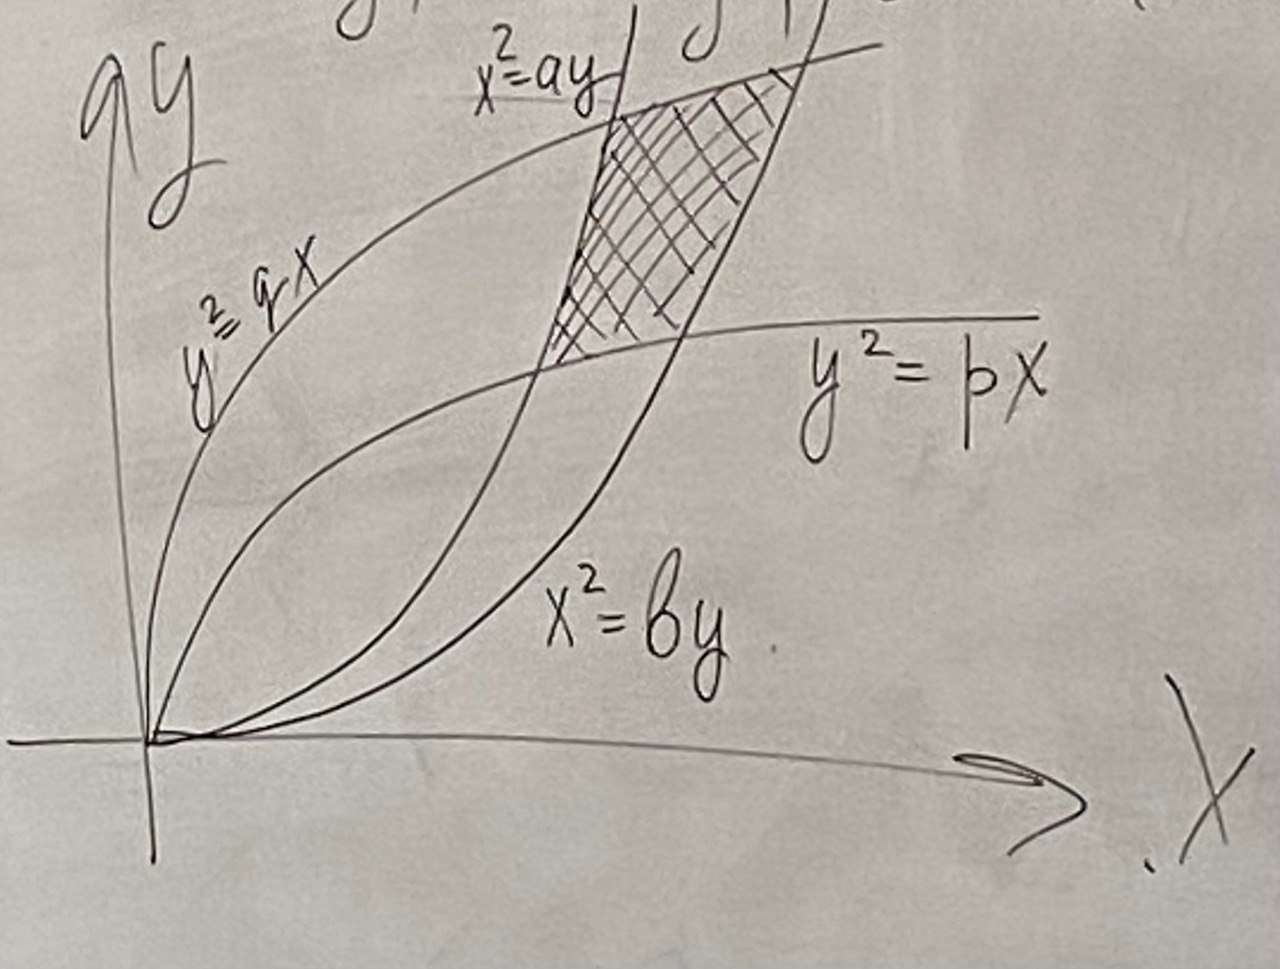 y
x²=ay
y²=qx
y²=px
x²=by
X